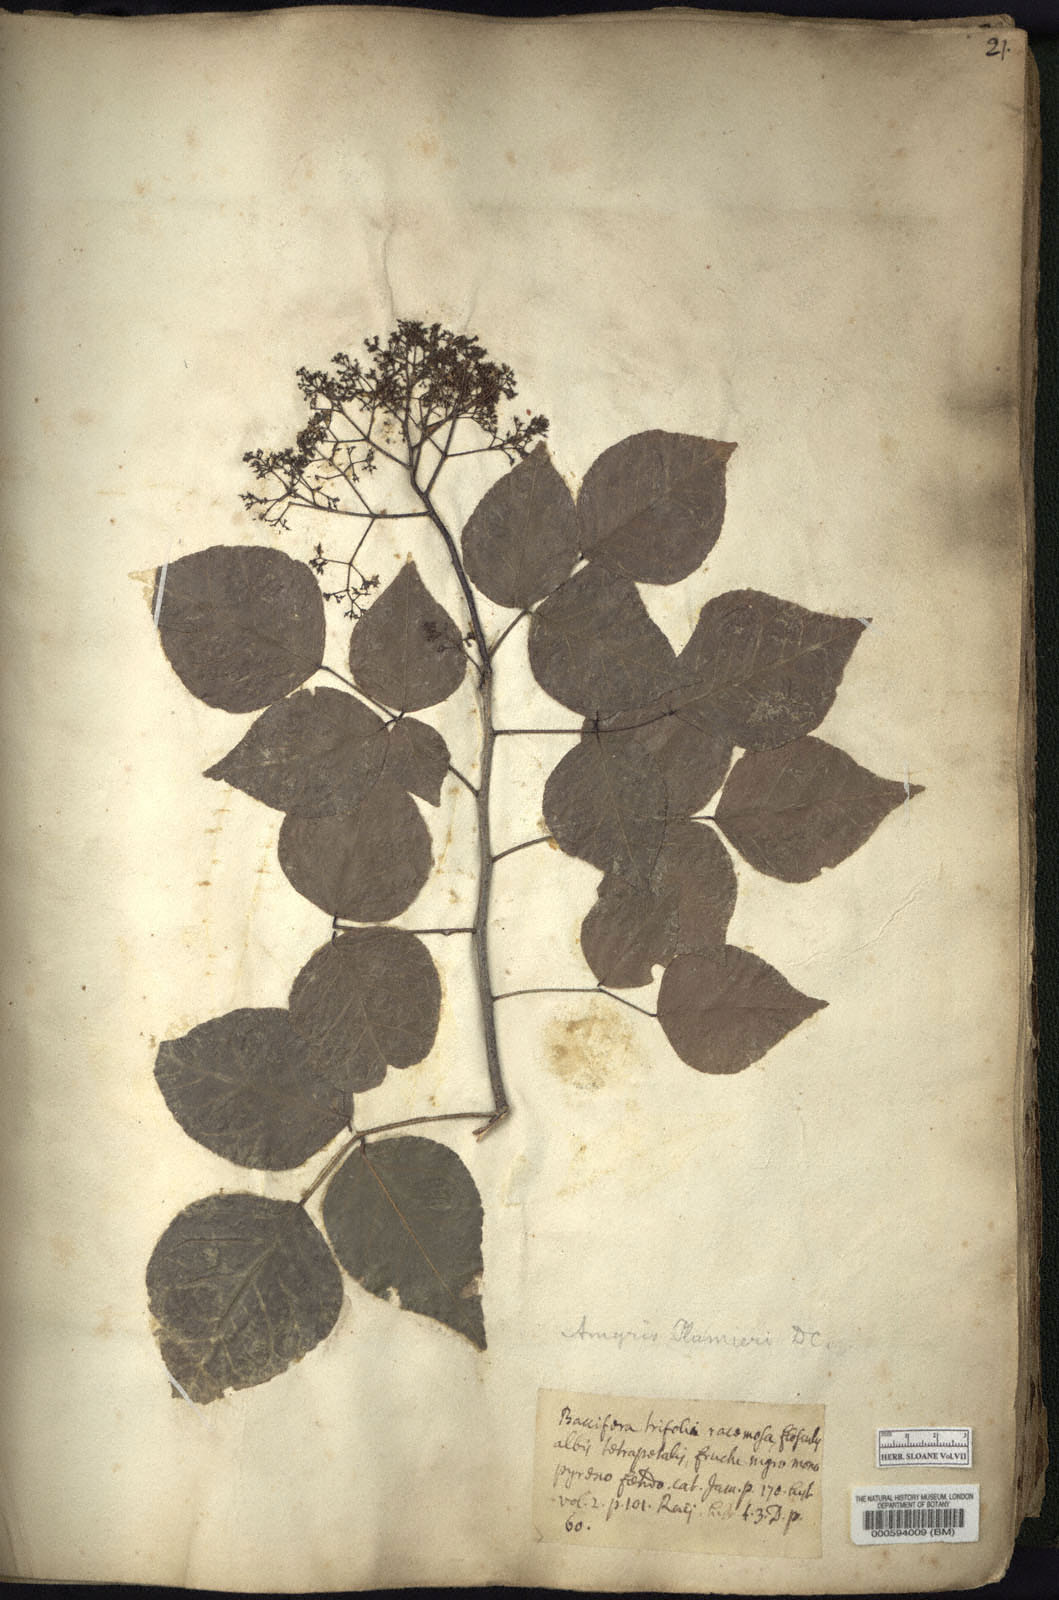 21.
Amyris Plumieri DC.
Baccifera trifolia racemosa, flosculis
albis tetrapetalis, fructu nigro mono
pyreno fœtido. cat. Jam. p. 170. hist.
vol. 2. p. 101. Raij. hist. t. 3. D. p.
60.
mm 0 1 2 3
HERB. SLOANE Vol.VII
THE NATURAL HISTORY MUSEUM, LONDON
DEPARTMENT OF BOTANY
000594009 (BM)